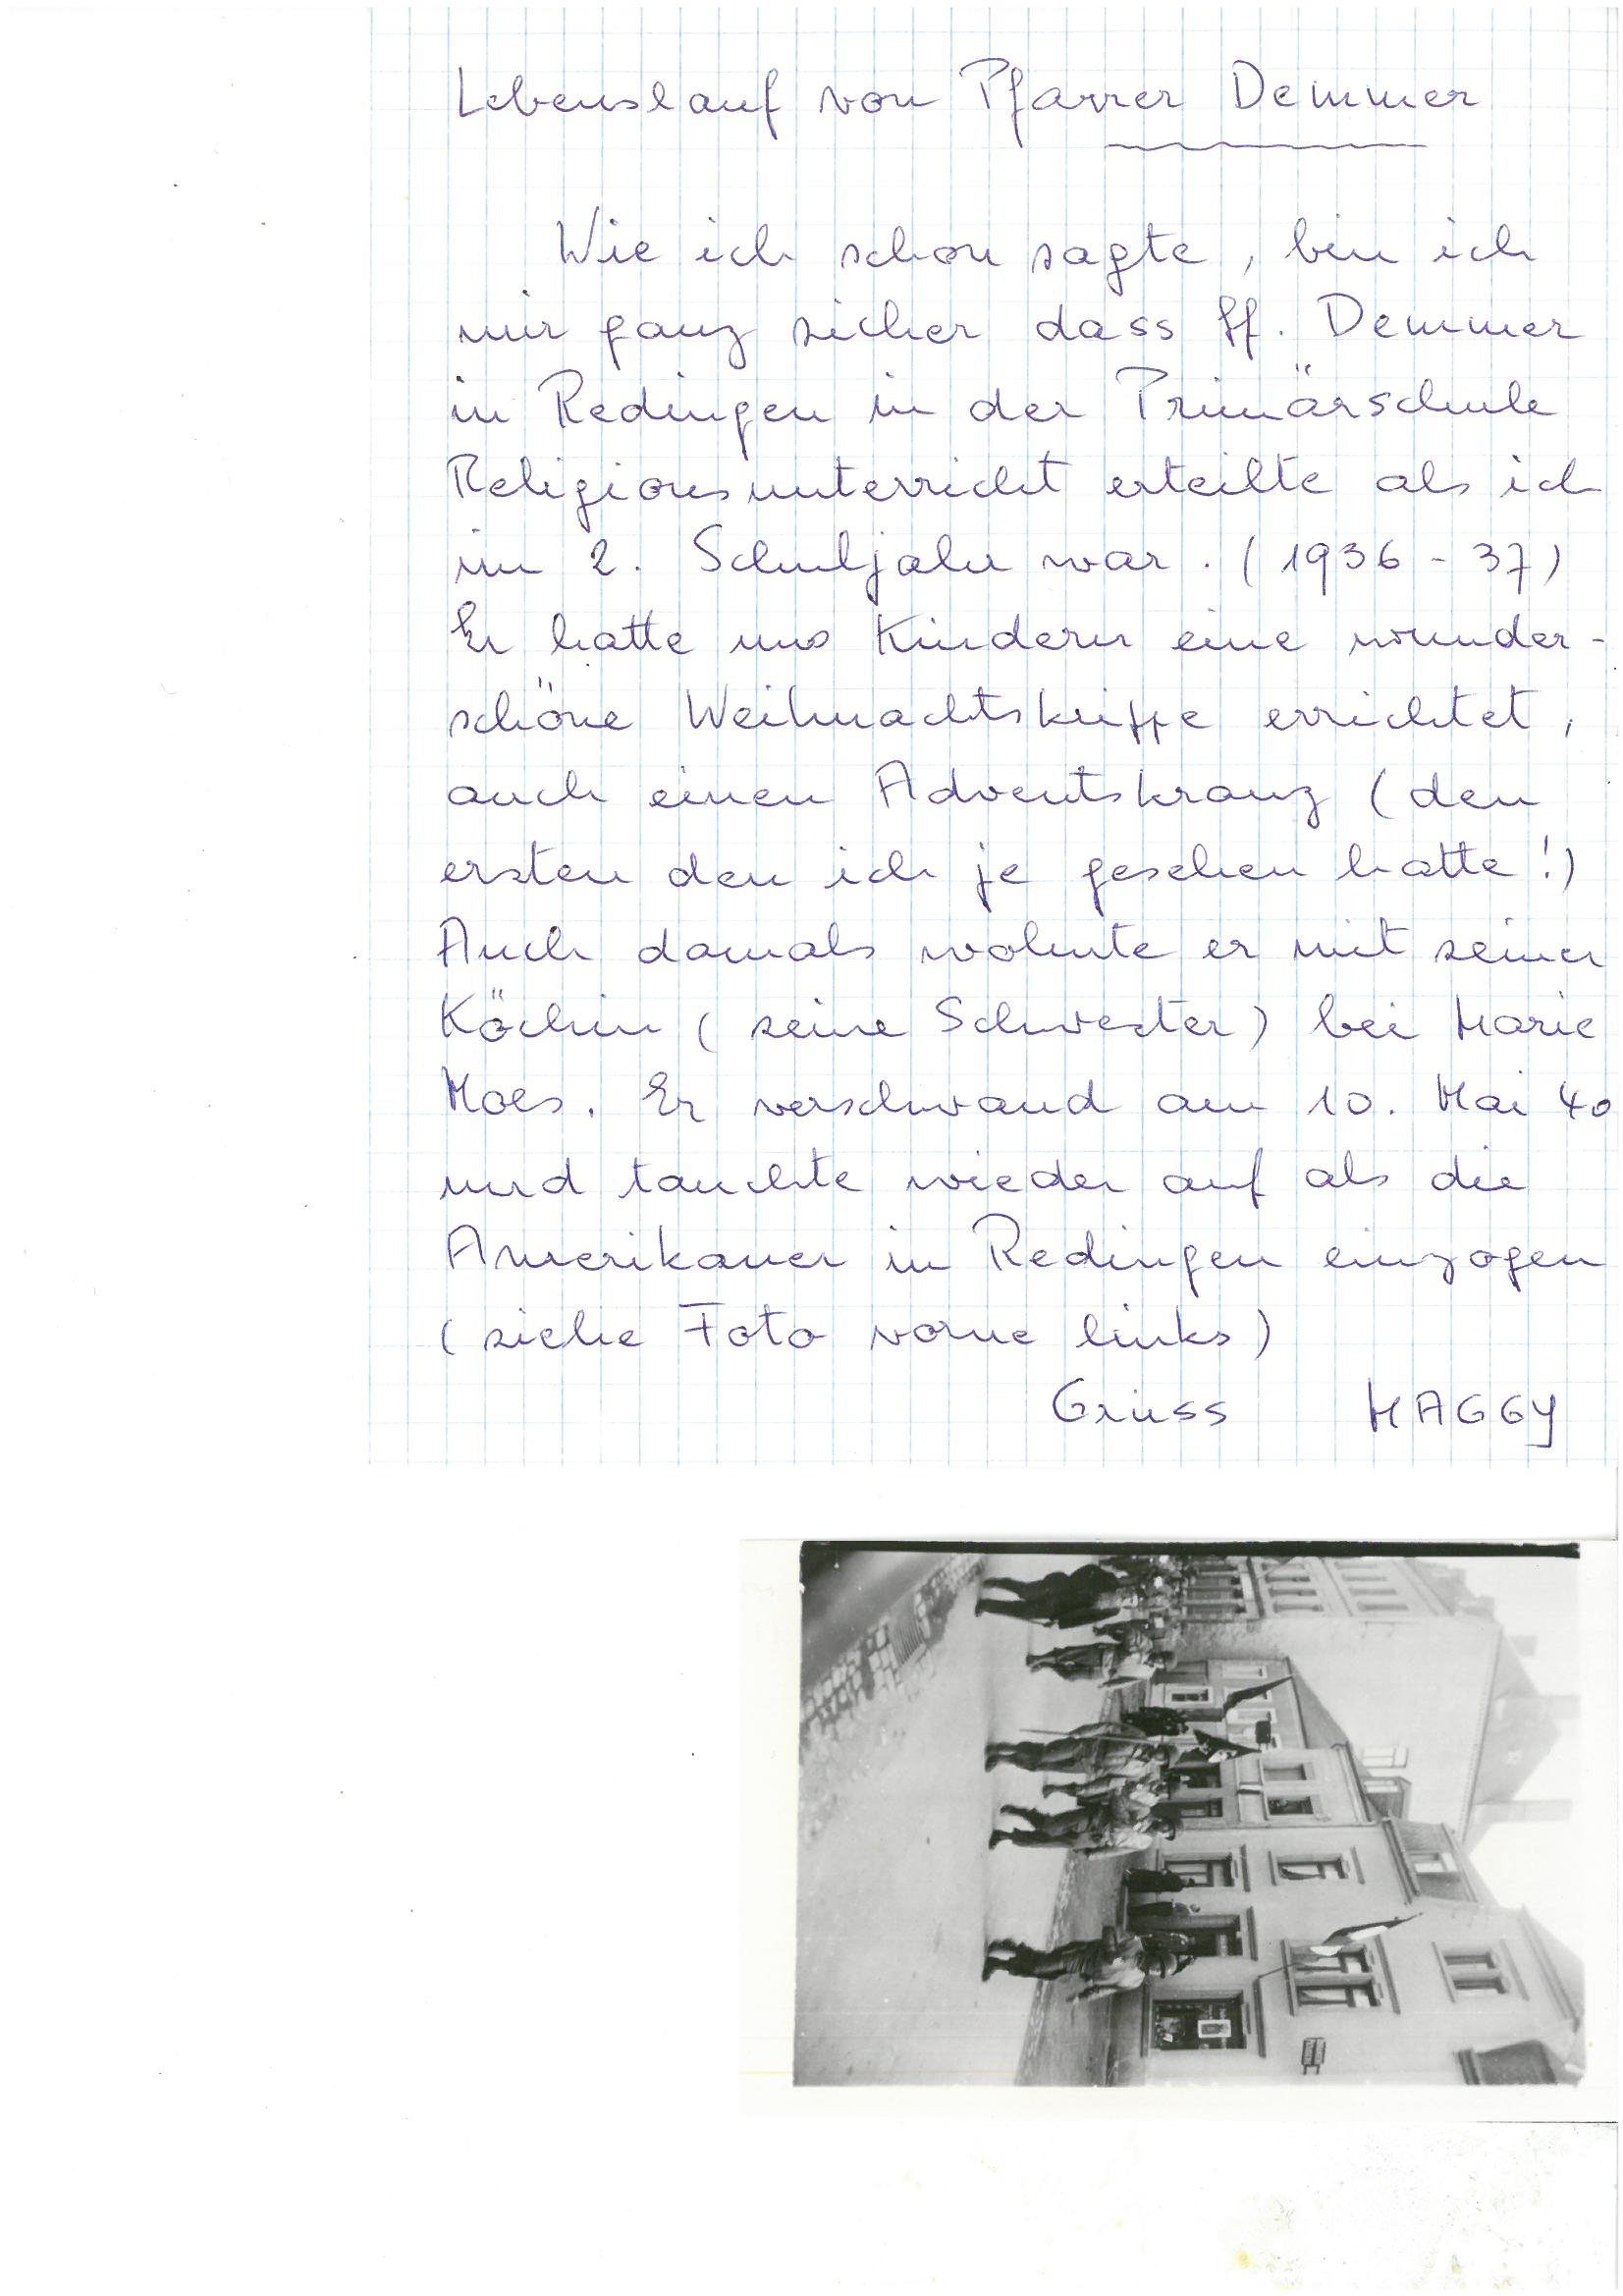 Lebenslauf von Pfarrer Demmer
Wie ich schon sagte, bin ich
mir ganz sicher dass Pf. Demmer
in Redingen in der Primärschule
Religionsunterricht erteilte als ich
im 2. Schuljahr war. (1936 - 37)
Er hatte uns Kindern eine wunder-
schöne Weihnachtskrippe errichtet,
auch einen Adventskranz (den
ersten den ich je gesehen hatte!)
Auch damals wohnte er mit seiner
Köchin (seine Schwester) bei Marie
Moes. Er verschwand am 10. Mai 40
und tauchte wieder auf als die
Amerikaner in Redingen einzogen
(siehe Foto vorne links)
Gruss MAGGY